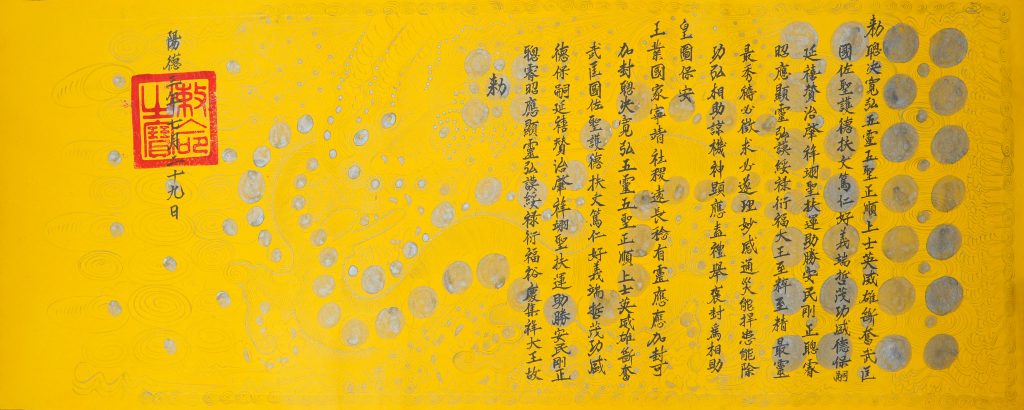 勅聰決寬弘五靈五聖正順上士英威雄斷奮武匡
國佐聖護德扶文篤仁好義端哲茂功威德保嗣
延禧贊治肇祥翊聖扶運助勝安民剛正聰睿
昭應顯靈弘謨綏祿衍福大王至粹至精最靈
最秀待必徵求必遂理妙感通災能捍患能除
功弘相助諒機神顯應盍禮舉褒封爲相助
皇圖保安
王業國家寧靖社稷遠長稔有靈應應加封可
加封聰決寬弘五靈五聖正順上士英威雄斷奮
武匡國佐聖護德扶文篤仁好義端哲茂功威
德保嗣延禧贊治肇祥翊聖扶運助勝安民剛正
聰睿昭應顯靈弘謨綏祿衍福裕慶集祥大王故
勅
陽德三年七月二十九日
敕命之寶